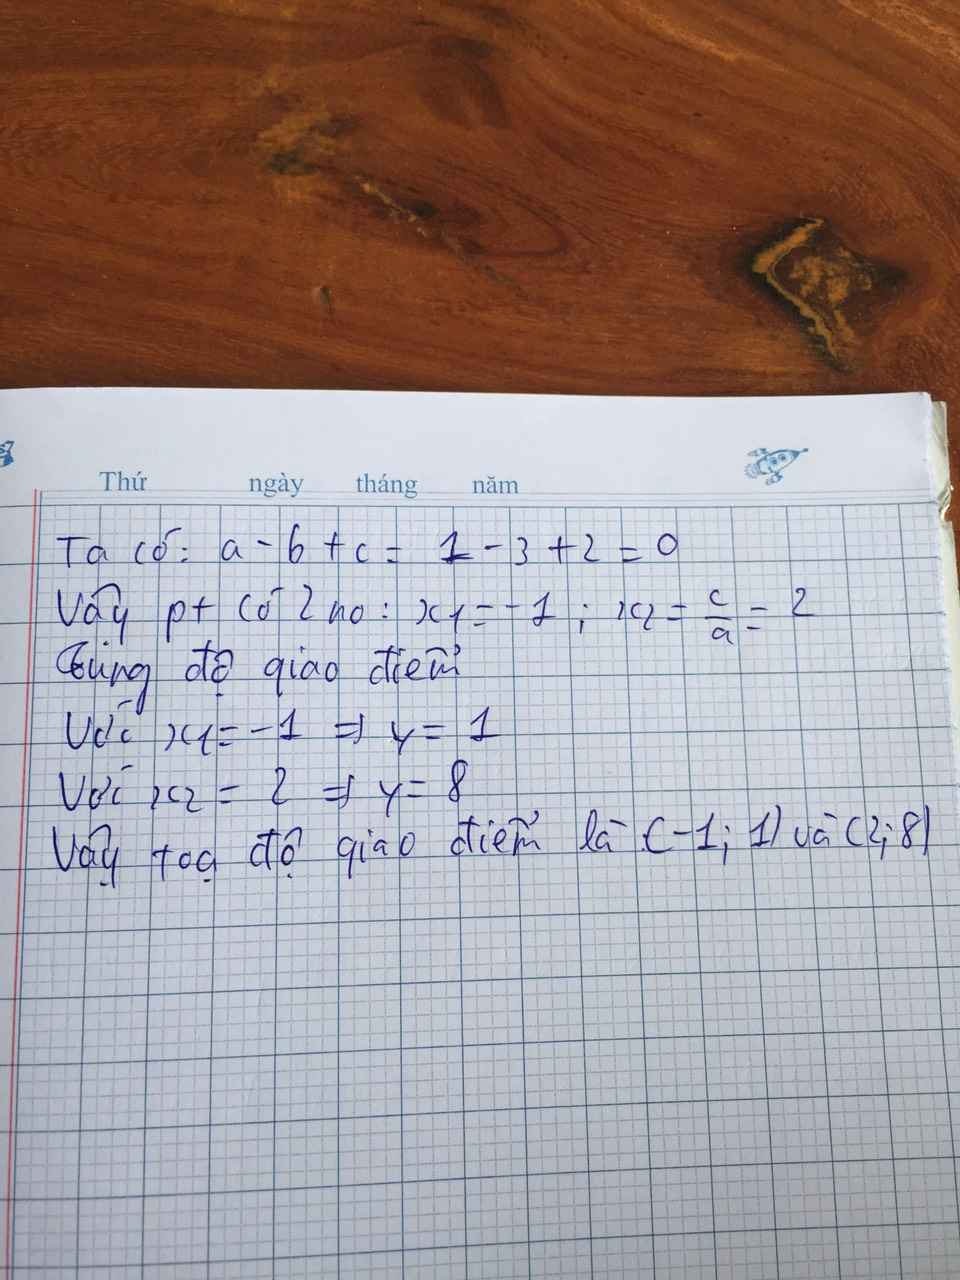 Thứ ngày tháng năm
Ta có: a - b + c = 1 - 3 + 2 = 0
Vậy pt có 2 no: x1 = -1 ; x2 = c/a = 2
Tung độ giao điểm
Với x1 = -1 => y = 1
Với x2 = 2 => y = 8
Vậy toạ độ giao điểm là (-1; 1) và (2; 8)